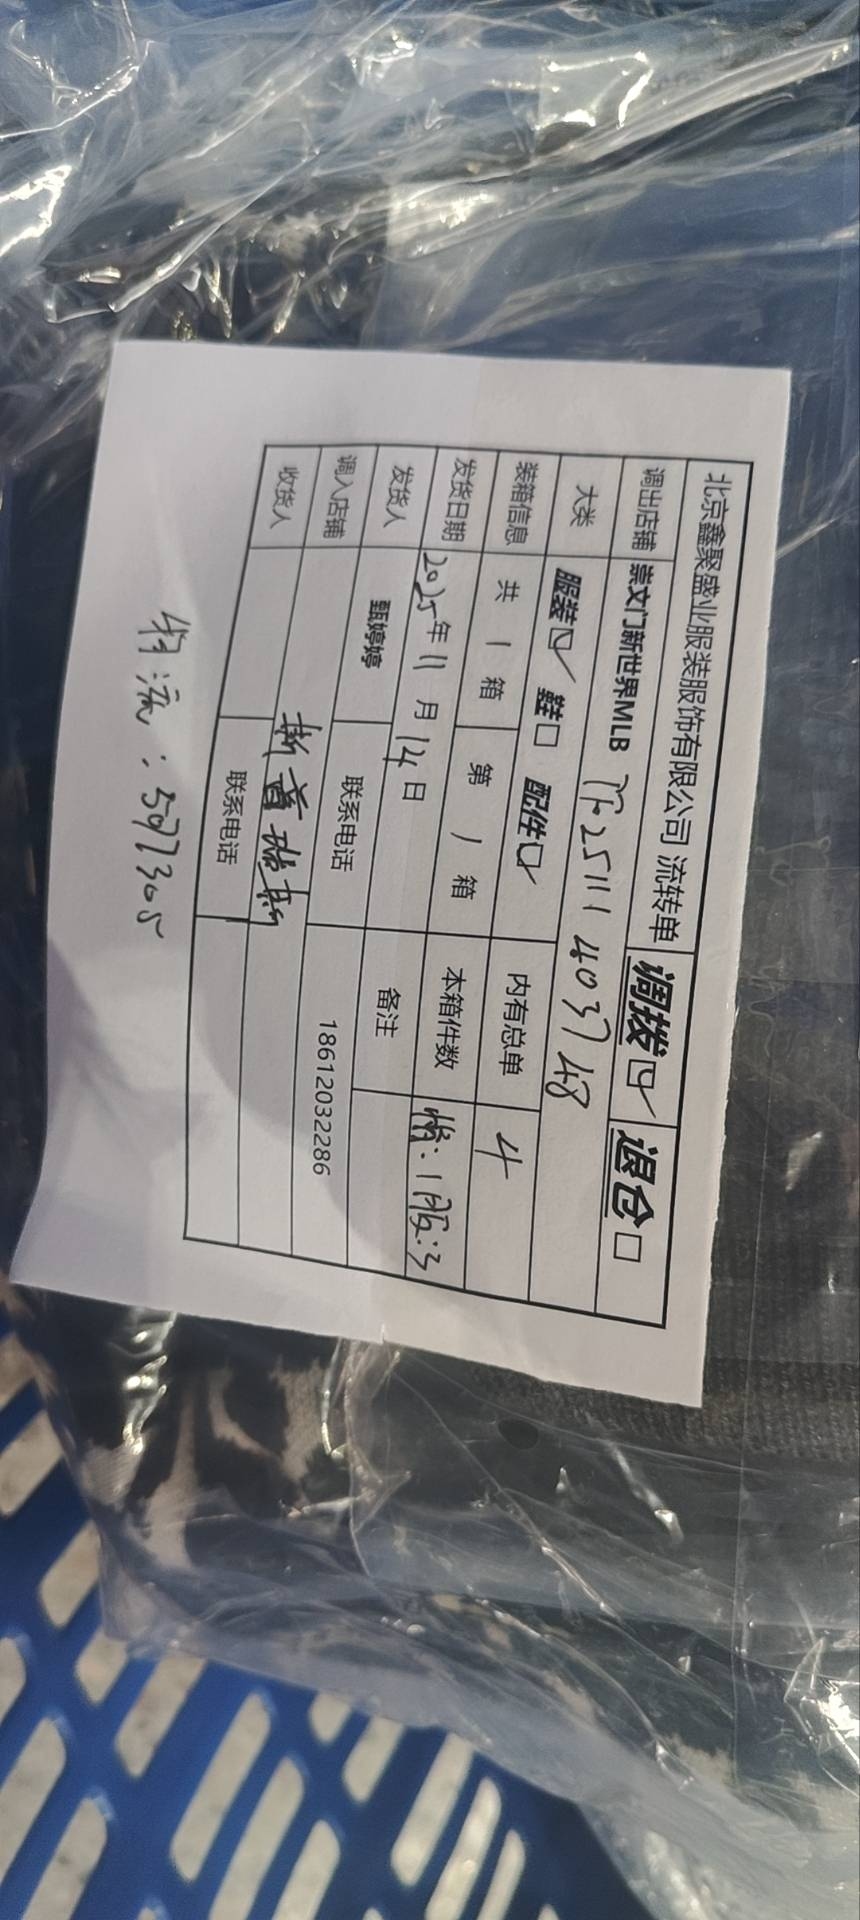 北京鑫聚盛业服装服饰有限公司 流转单 调拨☑ 退仓□
调出店铺 崇文门新世界MLB TF25111403748
大类 服装☑ 鞋□ 配件☑
装箱信息 共 1 箱 第 1 箱 内有总单 4
发货日期 2025年 11 月 14日 本箱件数 帽:1 服:3
发货人 甄婷婷 联系电话 18612032286 备注
调入店铺 斯普瑞斯
收货人 联系电话
物流:5977305